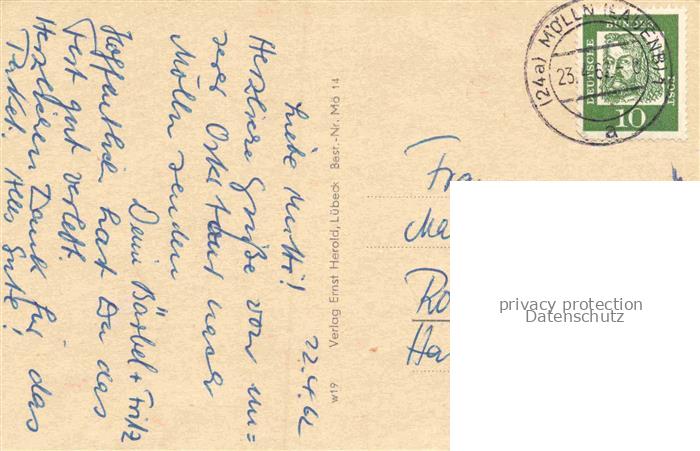 22.4.62
Liebe Mutti!
Herzliche Grüße von un=
serer Osterfahrt nach
Mölln senden
Deine Bärbel + Fritz
Hoffentlich hast Du das
Fest gut verlebt.
Herzlichen Dank für das
Paket. Alles Gute!
w19 Verlag Ernst Herold, Lübeck Best.-Nr. Mö 14
(24a) MÖLLN (LAUENB)
23.4.62
a
DEUTSCHE
BUNDES
POST
10
Ro
Ha
privacy protection
Datenschutz